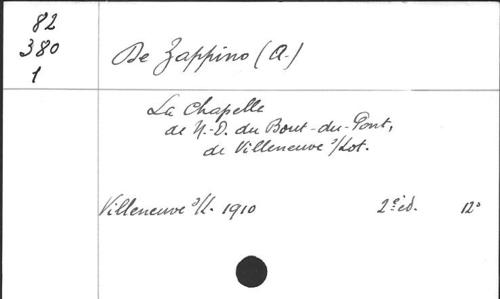 82
380
1
De Zappino (A.)
La Chapelle
de N.-D. du Bout-du-Pont,
de Villeneuve s/Lot.
Villeneuve s/L. 1910 2e éd. 12°